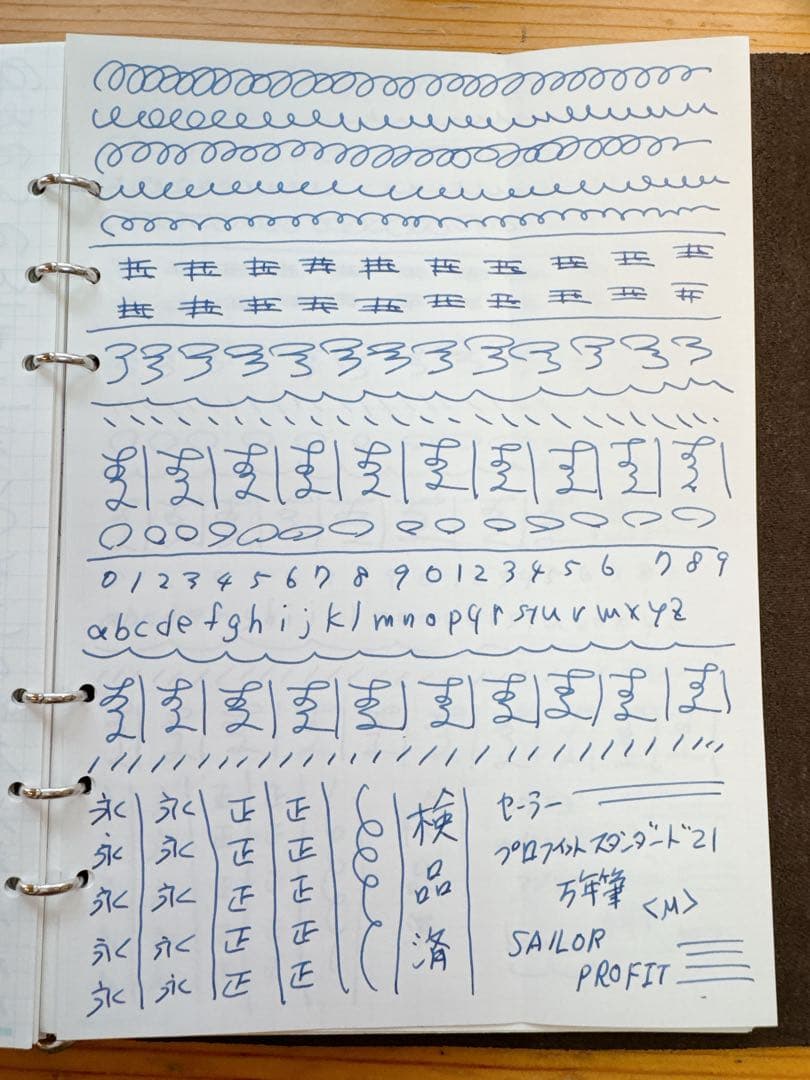 0 1 2 3 4 5 6 7 8 9 0 1 2 3 4 5 6 7 8 9
a b c d e f g h i j k l m n o p q r s t u v w x y z
永 永 正 正
永 永 正 正
永 永 正 正
永 永 正 正
永 永 正 正
検品済
セーラー
プロフィットスタンダード21
万年筆 <M>
SAILOR
PROFIT